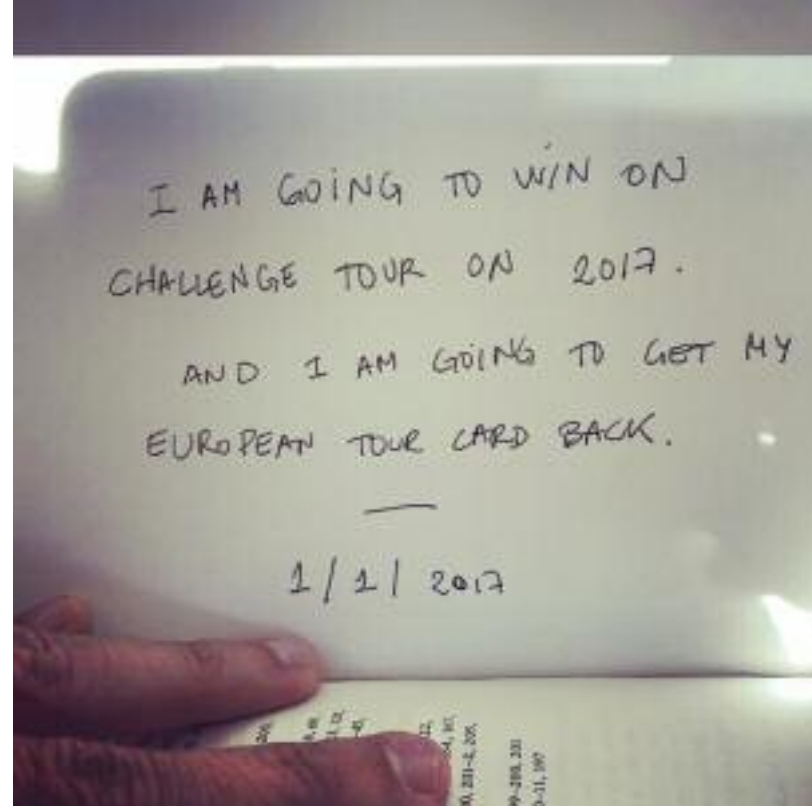 I AM GOING TO WIN ON
CHALLENGE TOUR ON 2017.
AND I AM GOING TO GET MY
EUROPEAN TOUR CARD BACK.
1/1/2017